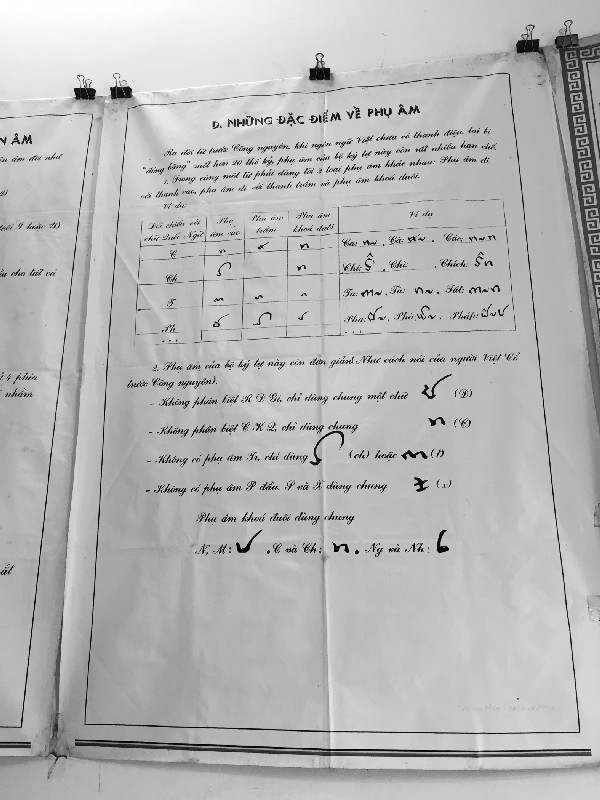 N ÂM
D. NHỮNG ĐẶC ĐIỂM VỀ PHỤ ÂM
Ra đời từ trước Công nguyên, khi ngôn ngữ Việt chưa có thanh điệu, lại bị
"đóng băng" một hơn 20 thế kỷ, phụ âm của bộ ký tự này còn rất nhiều hạn chế.
1. Trong cùng một từ phải dùng tới 2 loại phụ âm khác nhau: Phụ âm đi
với thanh cao, phụ âm đi với thanh trầm và phụ âm khoá đuôi.
Ví dụ:
Đối chiếu với chữ Quốc Ngữ | Phụ âm cao | Phụ âm trầm | Phụ âm khoá đuôi | Ví dụ
C | Ca: , Cà: , Các:
Ch | Chi: , Chì: , Chích:
T | Ta: , Tà: , Tát:
Ph | Pha: , Phà: , Pháp:
...
2. Phụ âm của bộ ký tự này còn đơn giản: Như cách nói của người Việt Cổ
trước Công nguyên).
- Không phân biệt R D Gi, chỉ dùng chung một chữ (D)
- Không phân biệt C K Q, chỉ dùng chung (C)
- Không có phụ âm Tr, chỉ dùng (ch) hoặc (t)
- Không có phụ âm P đầu. S và X dùng chung
Phụ âm khoá đuôi dùng chung
N, M: . C và Ch: . Ng và Nh: